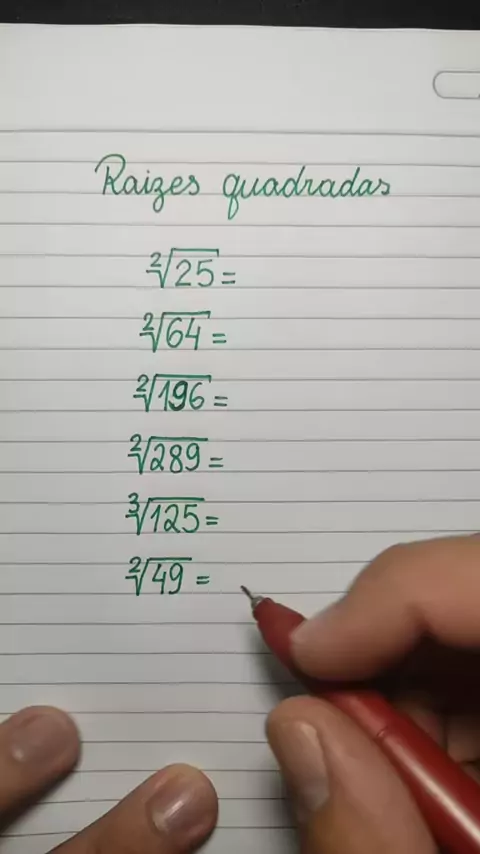 Raizes quadradas
²√25 =
²√64 =
²√196 =
²√289 =
³√125 =
²√49 =